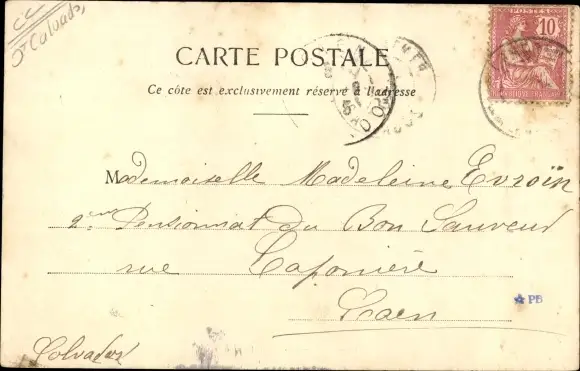 Calvados
CARTE POSTALE
Ce côte est exclusivement réservé à l'adresse
POSTES
10
RÉPUBLIQUE FRANÇAISE
Mademoiselle Madeleine Evroïn
2ème Pensionnat du Bon Sauveur
rue Caponière
Caen
PB
Calvados